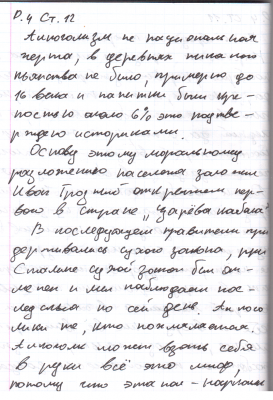 D.4 Ст. 12
Алкоголизм не национальная
черта, в деревнях никакого
пьянства не было, примерно до
16 века и напитки были кре-
постью около 6% это подтве-
рждено историками.
Основу этому моральному
разложению населения заложил
Иван Грозный открытием пер-
вого в стране „царёва кабака"
В последующем правители при-
держивались сухого закона, при
Сталине сухой закон был от-
менен и мы наблюдаем пос-
ледствия по сей день. Алкого
лики те, кто похмеляется.
Алкоголик может взять себя
в руки всё это миф,
потому что это нар-